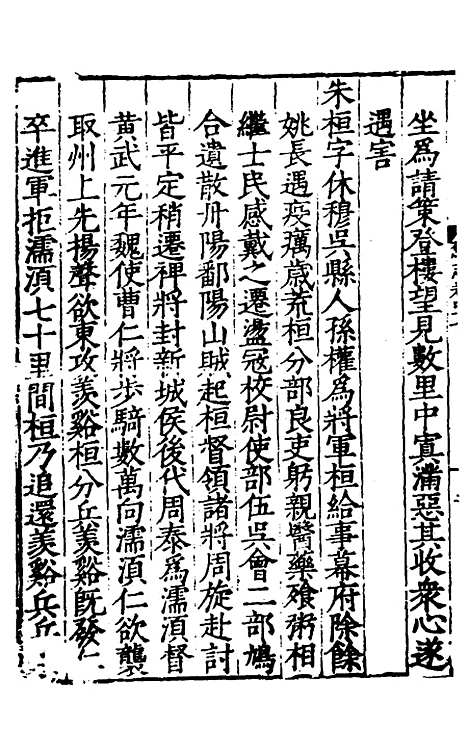 坐爲請策登樓望見數里中寘滿惡其收衆心遂
遇害
朱桓字休穆吳縣人孫權爲將軍桓給事幕府除餘
姚長遇疫癘歲荒桓分部良吏躬親醫藥飱粥相
繼士民感戴之遷盪冦校尉使部伍吳會二部鳩
合遺散丹陽鄱陽山賊起桓督領諸將周旋赴討
皆平定稍遷裨將封新城侯後代周泰爲濡湏督
黃武元年魏使曹仁將步騎數萬向濡湏仁欲襲
取州上先揚聲欲東攻羡谿桓分兵羡谿旣發仁
卒進軍拒濡湏七十里間桓乃追還羡谿兵兵